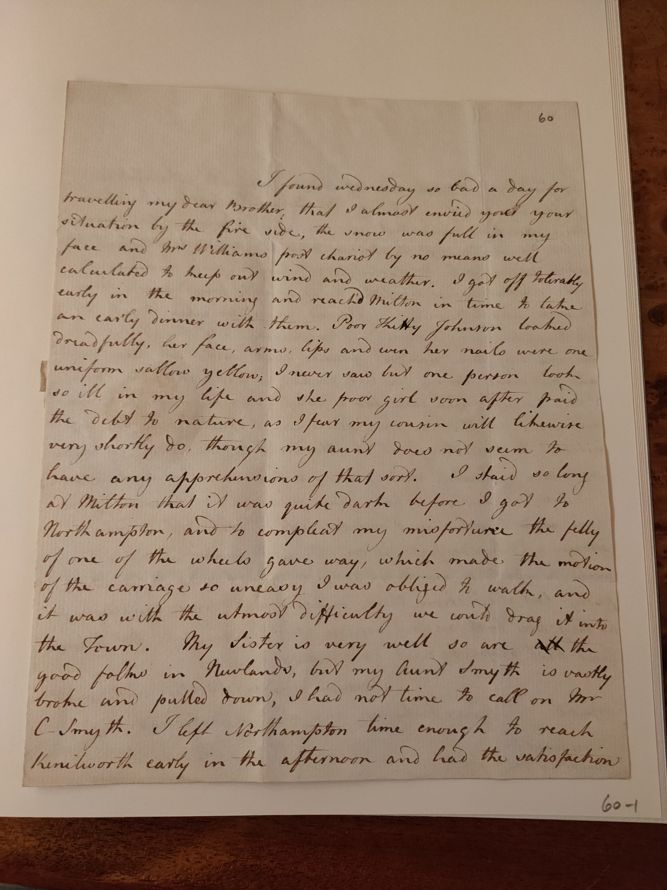 60
I found wednesday so bad a day for
travelling my dear Brother, that I almost envied you your
situation by the fire side, the snow was full in my
face and Mrs Williams post chariot by no means well
calculated to keep out wind and weather. I got off tolerably
early in the morning and reachd Milton in time to take
an early dinner with them. Poor Kitty Johnson looked
dreadfully, her face, arms, lips and even her nails were one
uniform sallow yellow; I never saw but one person look
so ill in my life and she poor girl soon after paid
the debt to nature, as I fear my cousin will likewise
very shortly do, though my aunt does not seem to
have any apprehensions of that sort. I staid so long
at Milton that it was quite dark before I got to
Northampton, and to compleat my misfortune the felly
of one of the wheels gave way, which made the motion
of the carriage so uneasy I was obliged to walk, and
it was with the utmost difficulty we could drag it into
the Town. My Sister is very well so are the
good folks in Newlands, but my Aunt Smyth is vastly
broke and pulled down, I had not time to call on Mr
C Smyth. I left Northampton time enough to reach
Kenilworth early in the afternoon and had the satisfaction
60-1